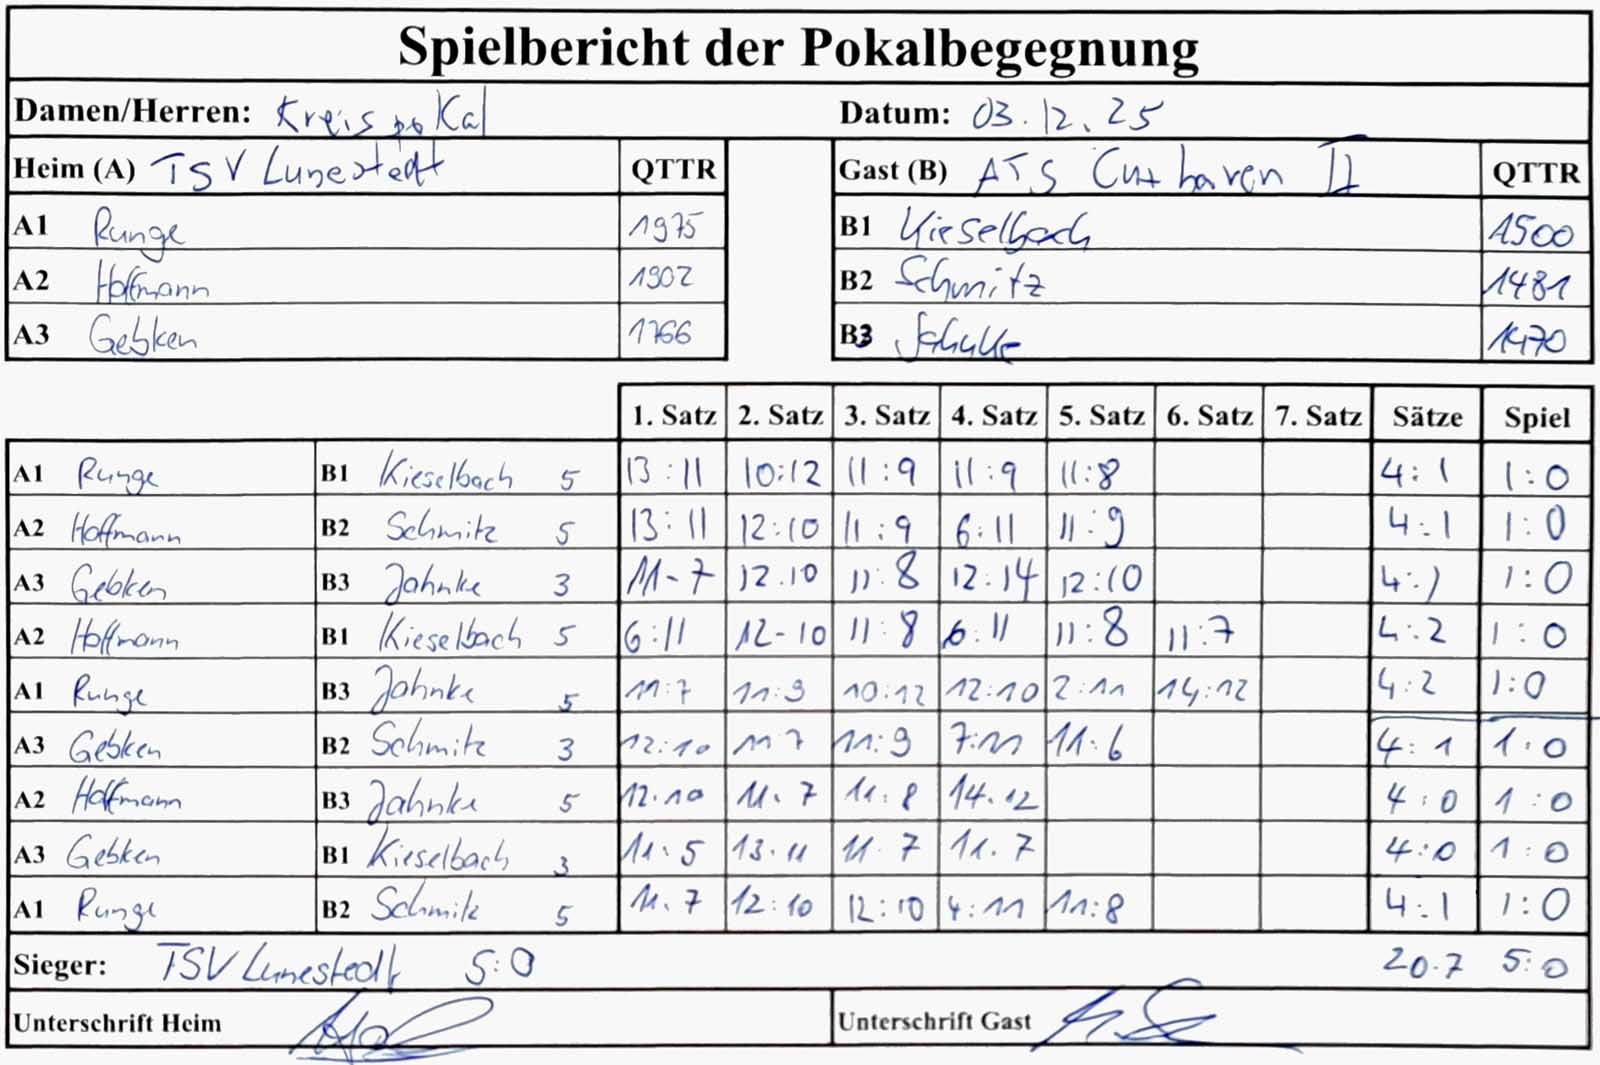 Spielbericht der Pokalbegegnung
Damen/Herren: Kreispokal Datum: 03.12.25
Heim (A) TSV Lunestedt QTTR Gast (B) ATS Cuxhaven II QTTR
A1 Runge 1975 B1 Kieselbach 1500
A2 Hoffmann 1902 B2 Schmitz 1481
A3 Gebken 1766 B3 1470
1. Satz 2. Satz 3. Satz 4. Satz 5. Satz 6. Satz 7. Satz Sätze Spiel
A1 Runge B1 Kieselbach 5 13:11 10:12 11:9 11:9 11:8 4:1 1:0
A2 Hoffmann B2 Schmitz 5 13:11 12:10 11:9 6:11 11:9 4:1 1:0
A3 Gebken B3 Jahnke 3 11-7 12.10 11:8 12.14 12:10 4:1 1:0
A2 Hoffmann B1 Kieselbach 5 6:11 12-10 11:8 6:11 11:8 11:7 4:2 1:0
A1 Runge B3 Jahnke 5 11:7 11:9 10:12 12:10 2:11 14:12 4:2 1:0
A3 Gebken B2 Schmitz 3 12:10 11 7 11:9 7:11 11:6 4:1 1:0
A2 Hoffmann B3 Jahnke 5 12.10 11.7 11:8 14.12 4:0 1:0
A3 Gebken B1 Kieselbach 3 11:5 13.11 11.7 11.7 4:0 1:0
A1 Runge B2 Schmitz 5 11.7 12:10 12:10 4:11 11:8 4:1 1:0
Sieger: TSV Lunestedt 5:0 20.7 5:0
Unterschrift Heim Unterschrift Gast